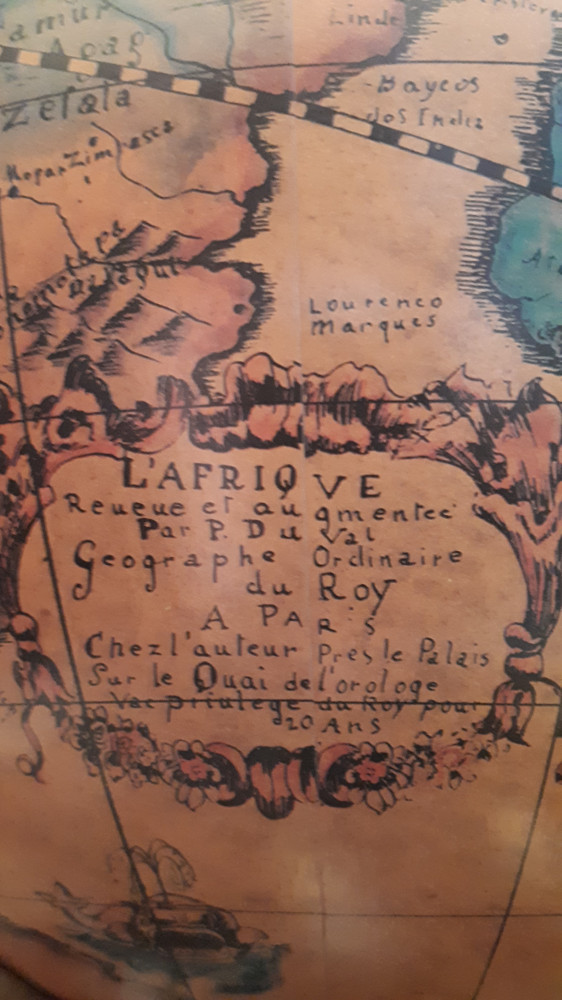 Linde
amur
Agag
Zefala
Baycos
dos Indiz
Lourenco
Marques
L'AFRIQVE
Reueue et augmentee
Par P. Du Val
Geographe Ordinaire
du Roy
A PARiS
Chez l'auteur Pres le Palais
Sur le Quai del'orologe
Vac priulege du Roy pour
20 Ans